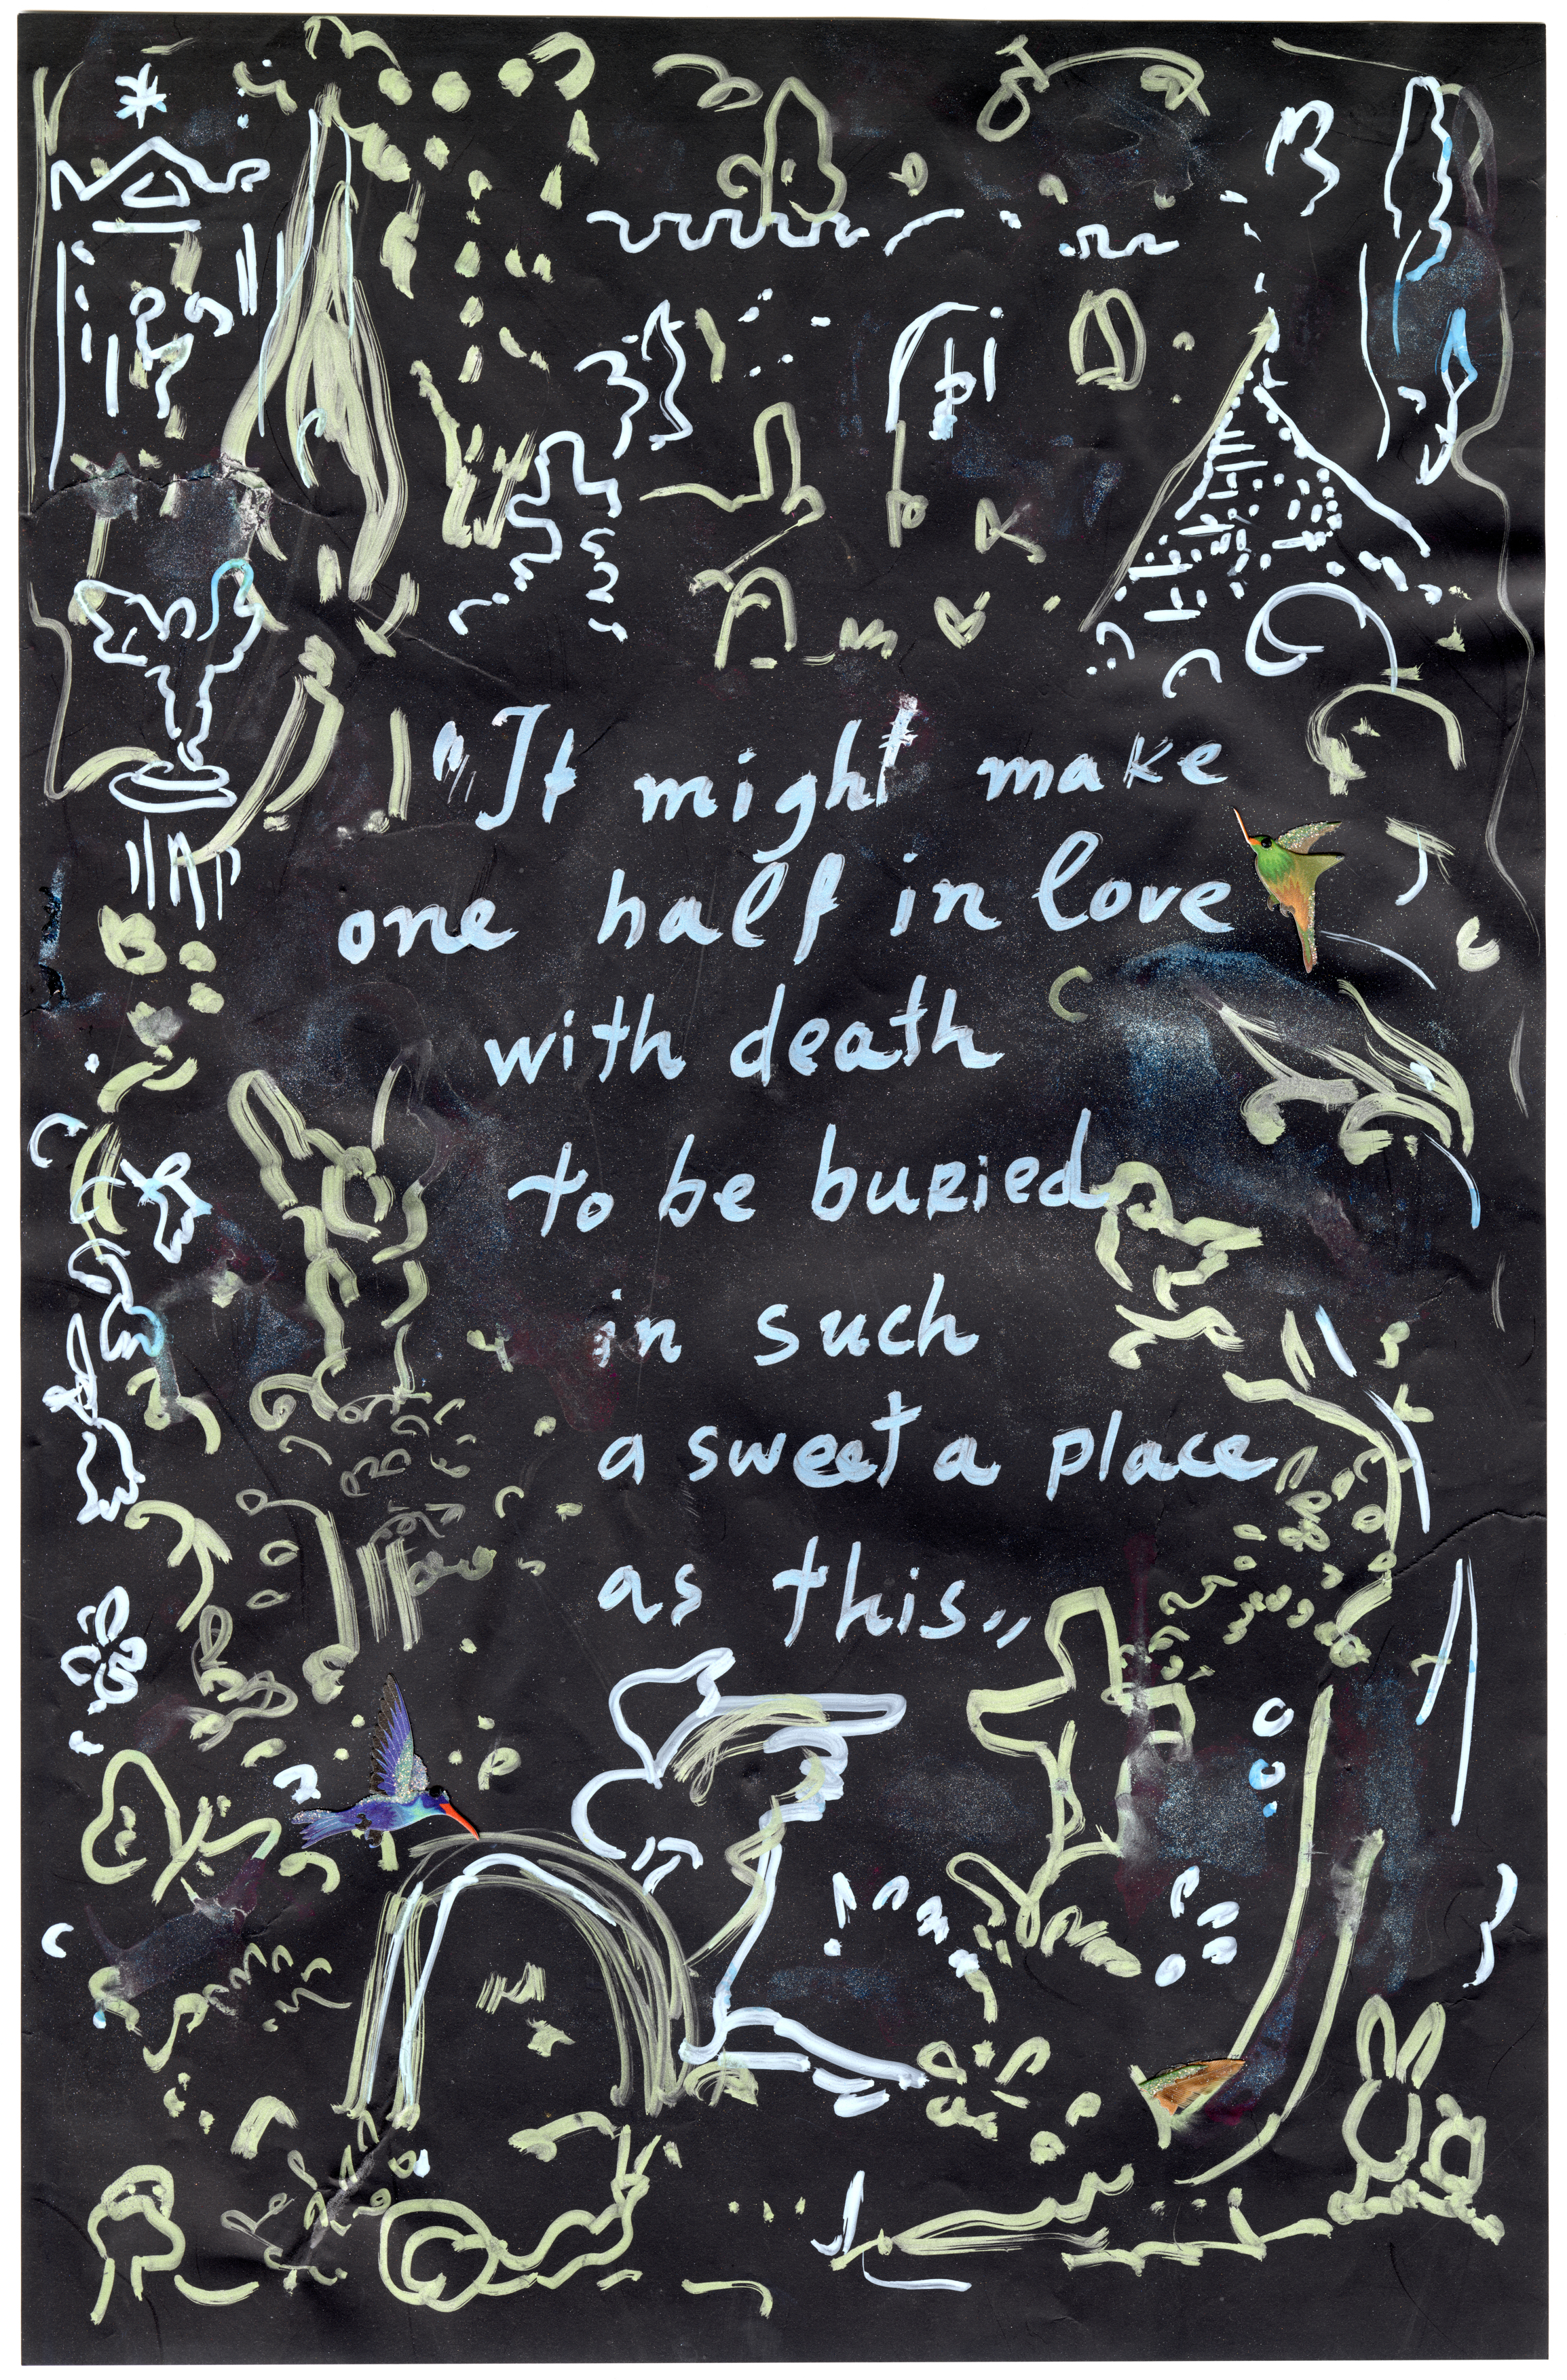 "It might make
one half in love
with death
to be buried
in such
a sweet a place
as this"